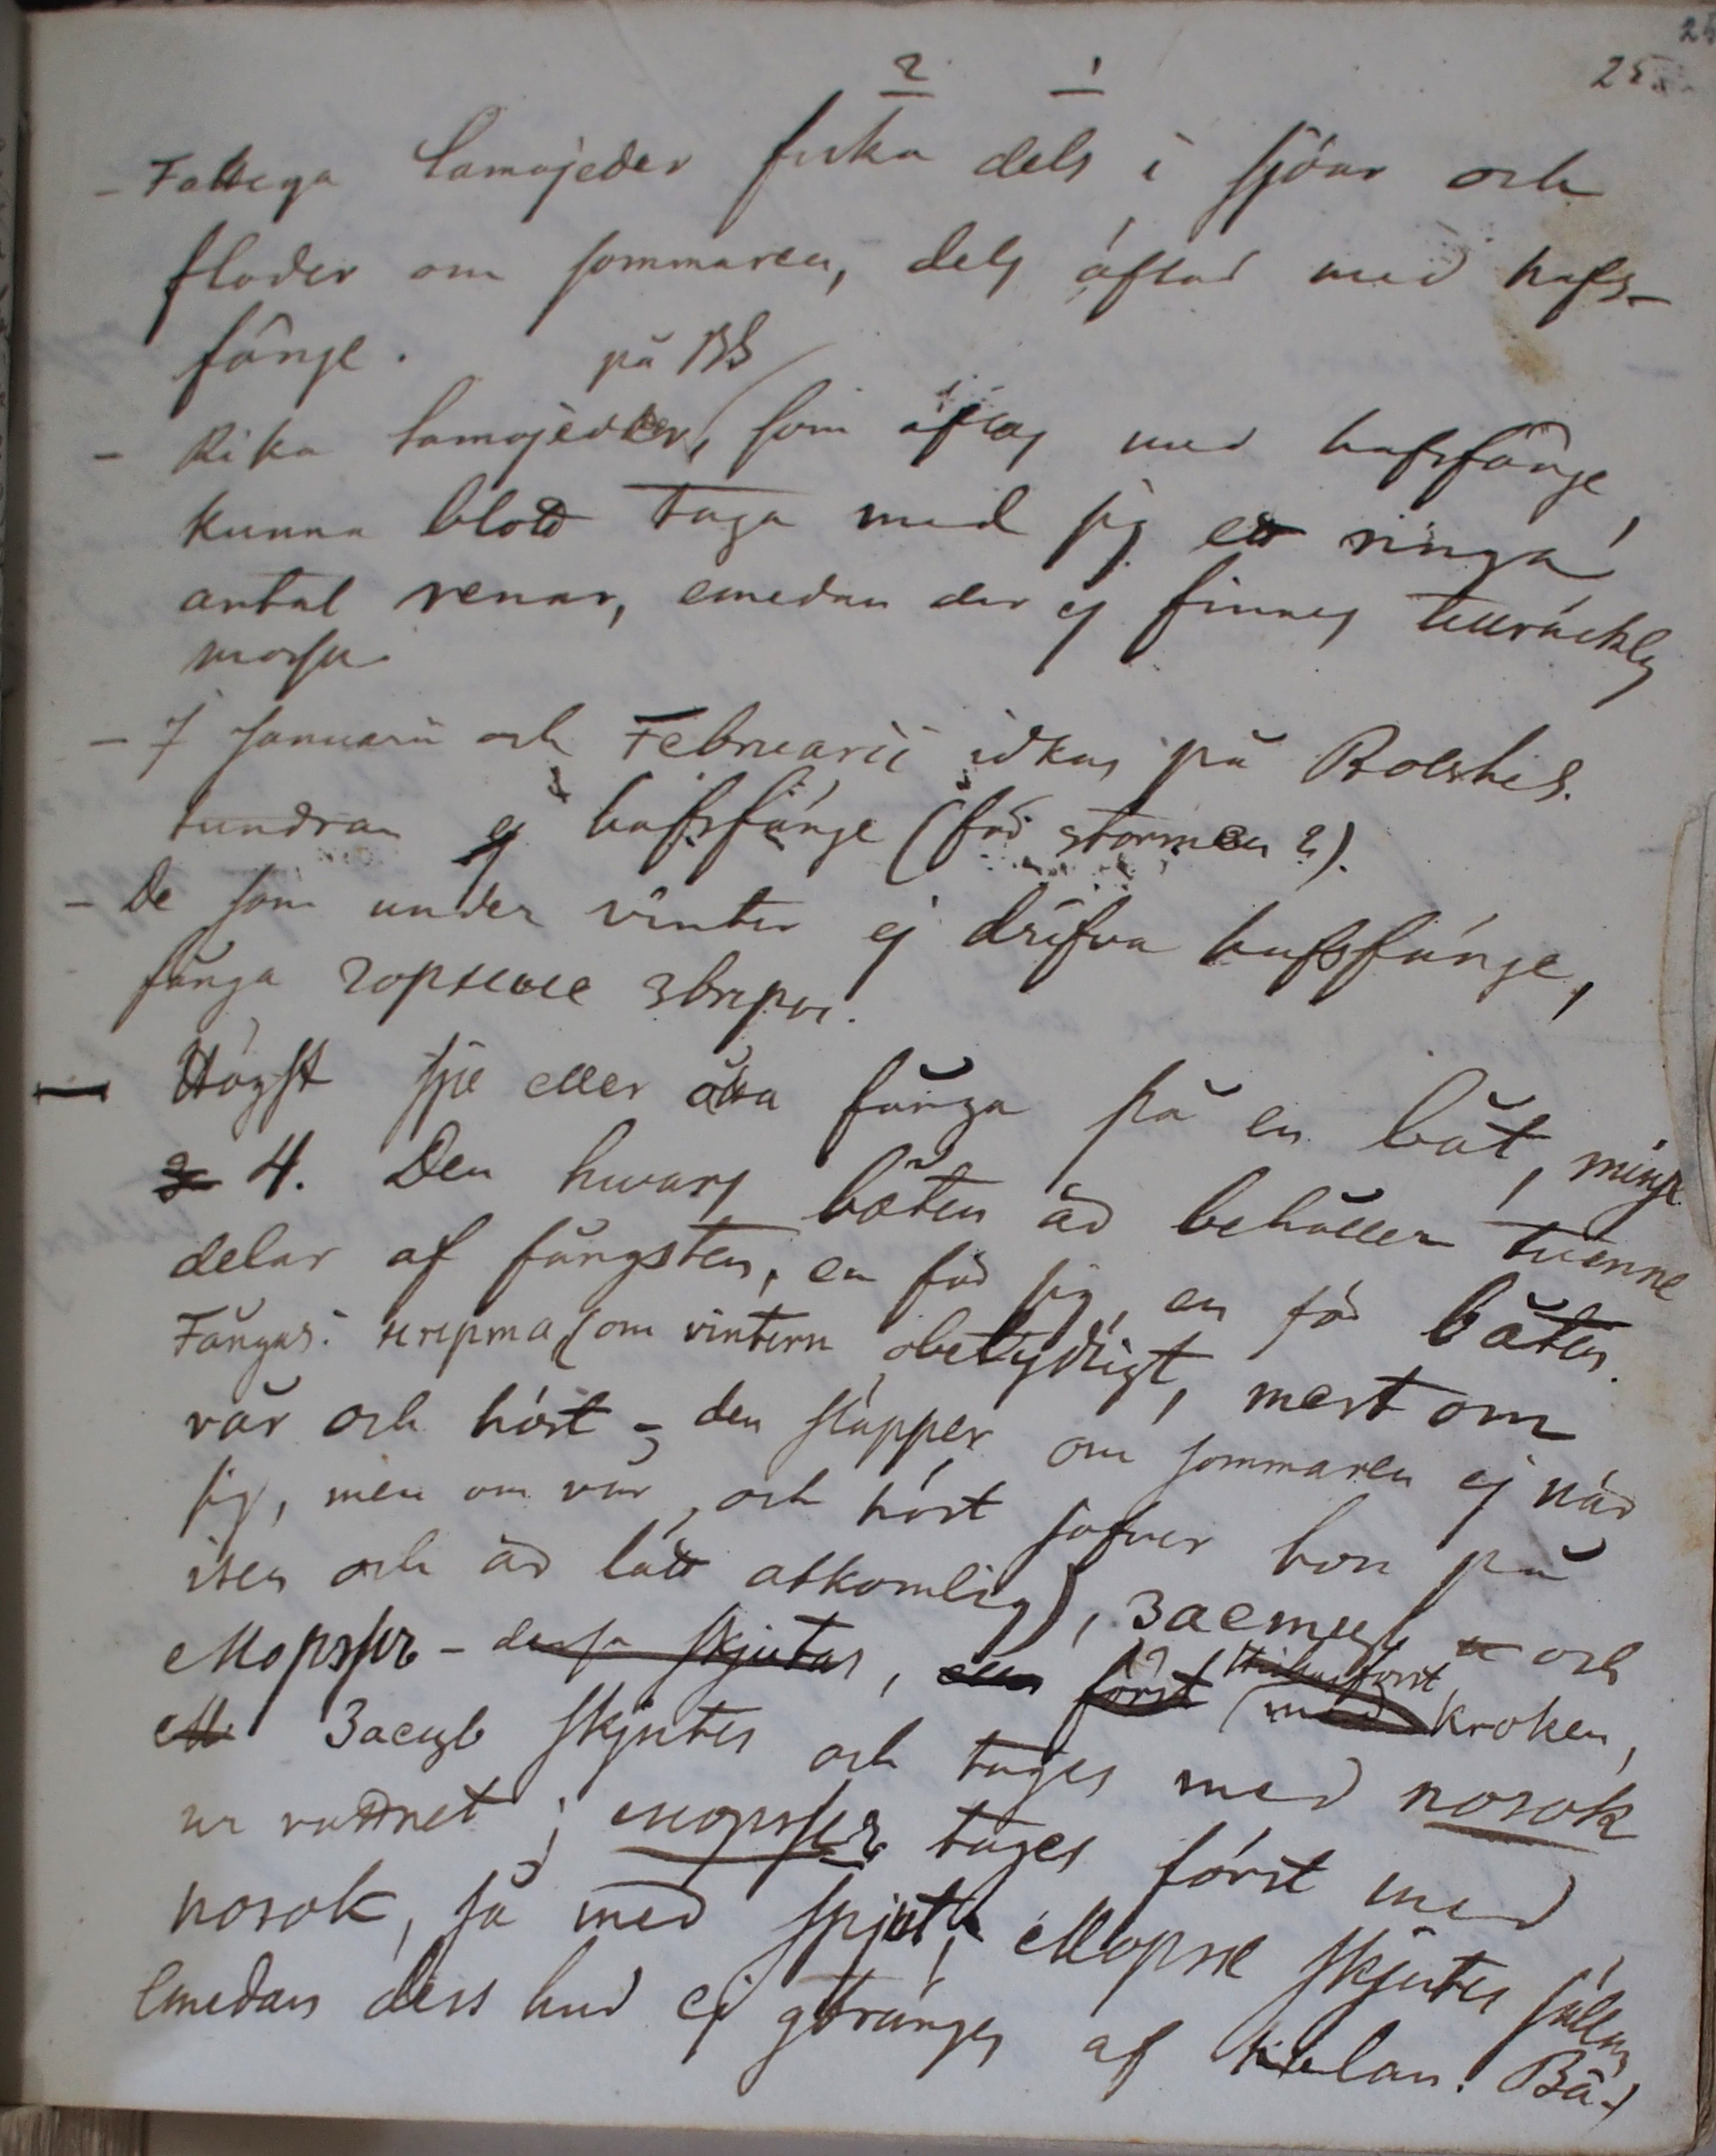 25
2 1
- Fattiga Samojeder fiska dels i sjöar och
floder om sommaren, dels öfvas med hafs-
fånge.
på BS
- Rika Samojeder, som öfvas med hafsfånge,
kunna blott taga med sig ett ringa
antal renar, emedan der ej finnes tillräcklig
mossa.
- I Januarii och Februarii idkas på Bolshes.
tundran ej hafsfånge (för stormen?).
- De som under vinter ej drifva hafsfånge,
fånga горные звѣри.
- Högst sju eller åtta fånga på en båt, minst
3 4. Den hwars båten är behåller tvenne
delar af fångsten, en för sig, en för båten.
Fångas: нерпа (om vintern obetydligt, mest om
vår och höst - den släpper om sommaren ej när
sig, men om vår och höst sofver hon på
isen och är lätt åtkomlig), заецъ och
Моржъ - dessa skjutas, först med kroken,
М Заецъ skjutes och tages med nosok
ur vattnet; моржъ tages först med
nosok, så med spjut; Морж skjutes sällan
emedan dess hud ej gtränges af kulan. Bå-